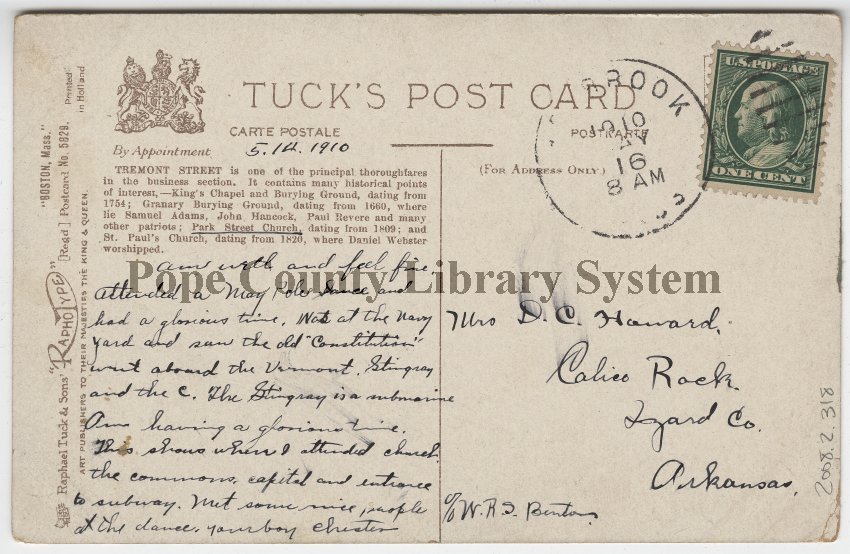 TUCK'S POST CARD
CARTE POSTALE
POSTKARTE
By Appointment
5.14.1910
(FOR ADDRESS ONLY.)
TREMONT STREET is one of the principal thoroughfares
in the business section. It contains many historical points
of interest,—King's Chapel and Burying Ground, dating from
1754; Granary Burying Ground, dating from 1660, where
lie Samuel Adams, John Hancock, Paul Revere and many
other patriots; Park Street Church, dating from 1809; and
St. Paul's Church, dating from 1820, where Daniel Webster
worshipped.
am well and feel fine
attended a May Pole Dance and
had a glorious time. Was at the Navy
yard and saw the old "Constitution"
went aboard the Vermont, Stingray
and the C. The Stingray is a submarine
Am having a glorious time.
This shows where I attended church,
the commons, capital and entrance
to subway. Met some nice people
at the dance. your boy Chester
Mrs D. C. Howard,
Calico Rock.
Izard Co.
Arkansas.
c/o W.R.S. Benton
BROOK
1910
MAY
16
8 AM
U.S. POSTAGE
ONE CENT
"BOSTON, Mass."
Printed
in Holland
Raphael Tuck & Sons' "RAPHOTYPE" [Regd] Postcard No. 5829.
ART PUBLISHERS TO THEIR MAJESTIES THE KING & QUEEN.
2008.2.318
Pope County Library System